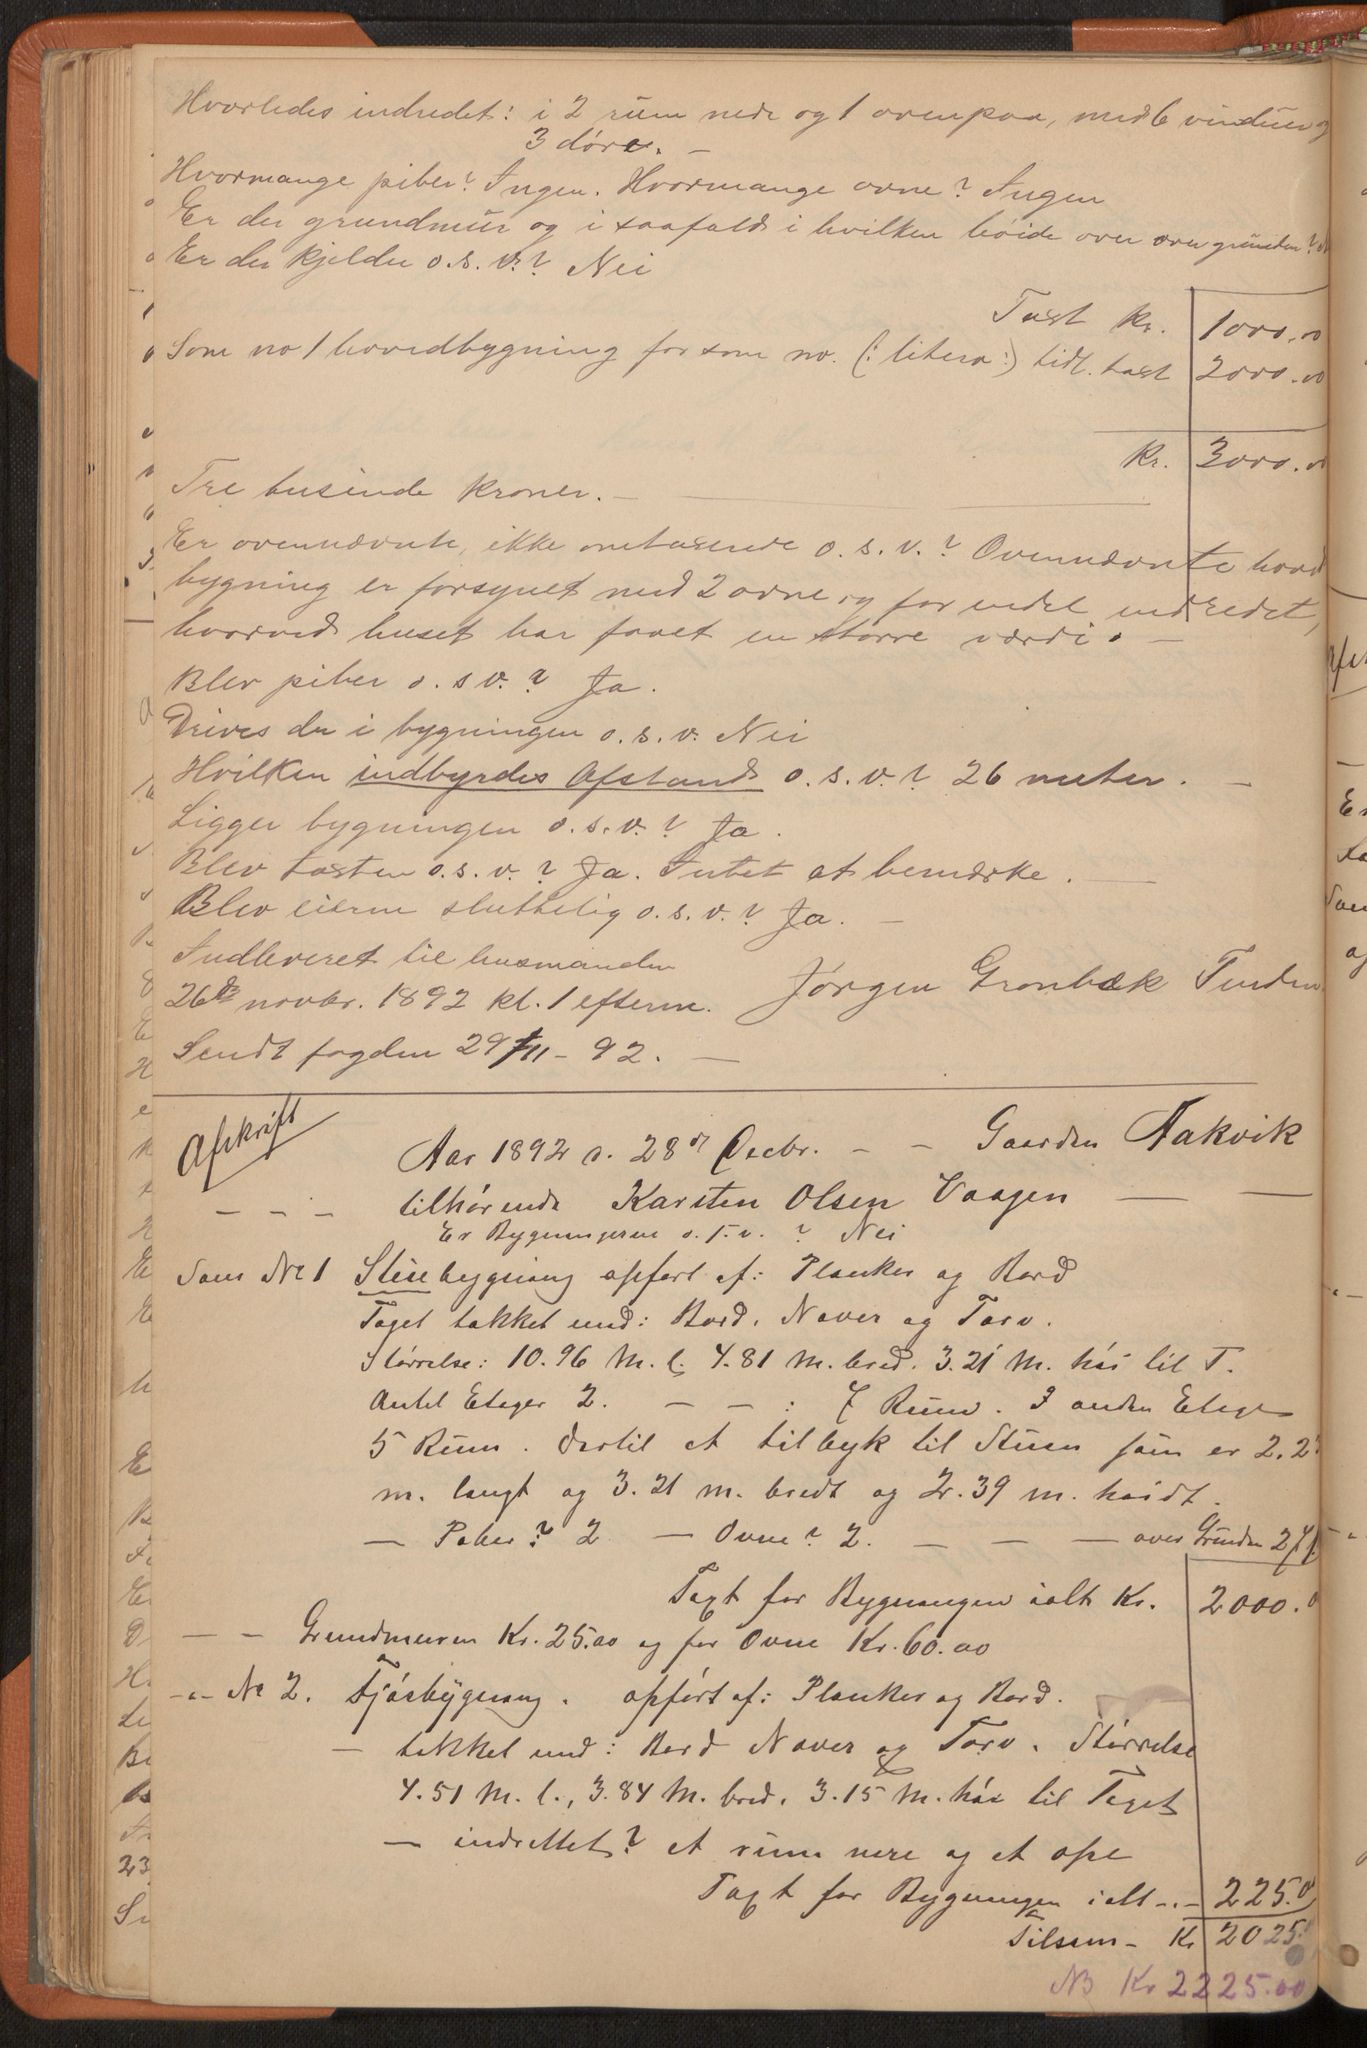 Hvorledes indredet: i 2 rum nede og 1 ovenpaa, med 6 vinduer og
3 døre. —
Hvormange piber? Ingen. Hvormange ovne? Ingen
Er der grundmur og i saafald i hvilken høide over over grunden?
Er der kjelder o.s.v.? Nei
Taxt kr. 1000.00
Som no 1 hovedbygning før som no. (: litera :) tidl. taxt 2000.00
kr. 3000.00
Tre tusinde kroner. —
Er ovennævnte, ikke omtaxerede o.s.v.? Ovennævnte hoved
bygning er forsynet med 2 ovne og for endel indredet,
hvorved huset har faaet en større værdi. —
Blev piber o.s.v.? Ja.
Drives der i bygningen o.s.v. Nei
Hvilken indbyrdes Afstand o.s.v.? 26 meter. —
Ligger bygningen o.s.v.? Ja.
Blev taxten o.s.v.? Ja. Intet at bemærke. —
Blev eieren sluttelig o.s.v.? Ja. —
Indleveret til lensmanden
26de novbr. 1892 kl. 1 efterm. Jørgen Grønbæk
Sendt fogden 29/11 - 92. —
Afskrift
Aar 1892 d. 28d Decbr. — — Gaarden Aakvik
— — — tilhørende Karsten Olsen Vaagen — —
Er Bygningerne o.s.v. ? Nei
Som No 1 Stuebygning opført af: Planker og Bord
Taget tækket med: Bord, Næver og Torv.
Størrelse: 10.96 M. l. 4.81 M. bred. 3.21 M. høi til T.
Antal Etager 2. — — : 7 Rum. I anden Etage
5 Rum. Dertil et tilbyk til Stuen som er 2.2
m. langt og 3.21 m. bredt og 2.39 m. høidt.
— Piber? 2 — Ovne? 2. — — — over Grunden 2
Taxt for Bygningen ialt Kr. 2000.0
— — Grundmuren Kr. 25.00 og for Ovne Kr. 60.00
-"- No 2. Fjøsbygning. opført af: Planker og Bord.
— tækket med: Bord Næver og Torv. Størrelse
4.51 M. l., 3.84 M. bred. 3.15 M. høi til Taget
— indrettet? et rum nere og et ope
Taxt for Bygningen ialt -"- 225.0
Tilsam- Kr 2025.
NB Kr 2225.00